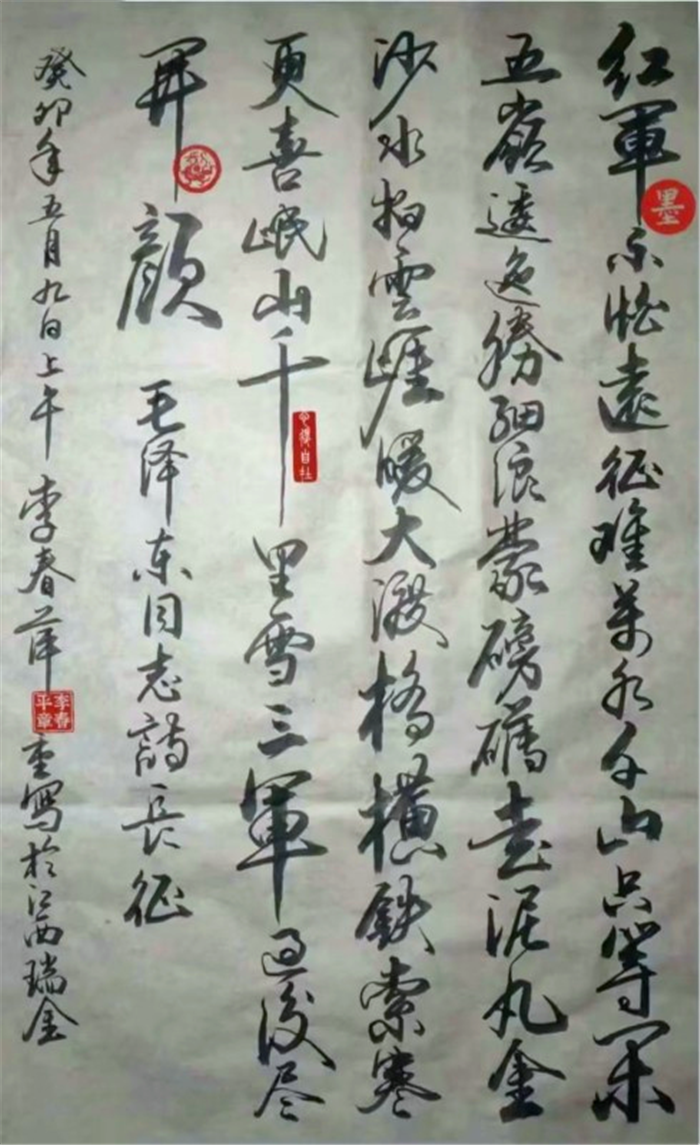 红軍不怕遠征难萬水千山只等闲
五嶺逶迤勝細浪蒙磅礴走泥丸金
沙水拍雲崖暖大渡橋橫鉄索寒
更喜岷山千里雪三軍过後尽
開顔
毛泽东同志詩長征
癸卯年五月九日上午李春萍重寫於江西瑞金
墨
李春平章